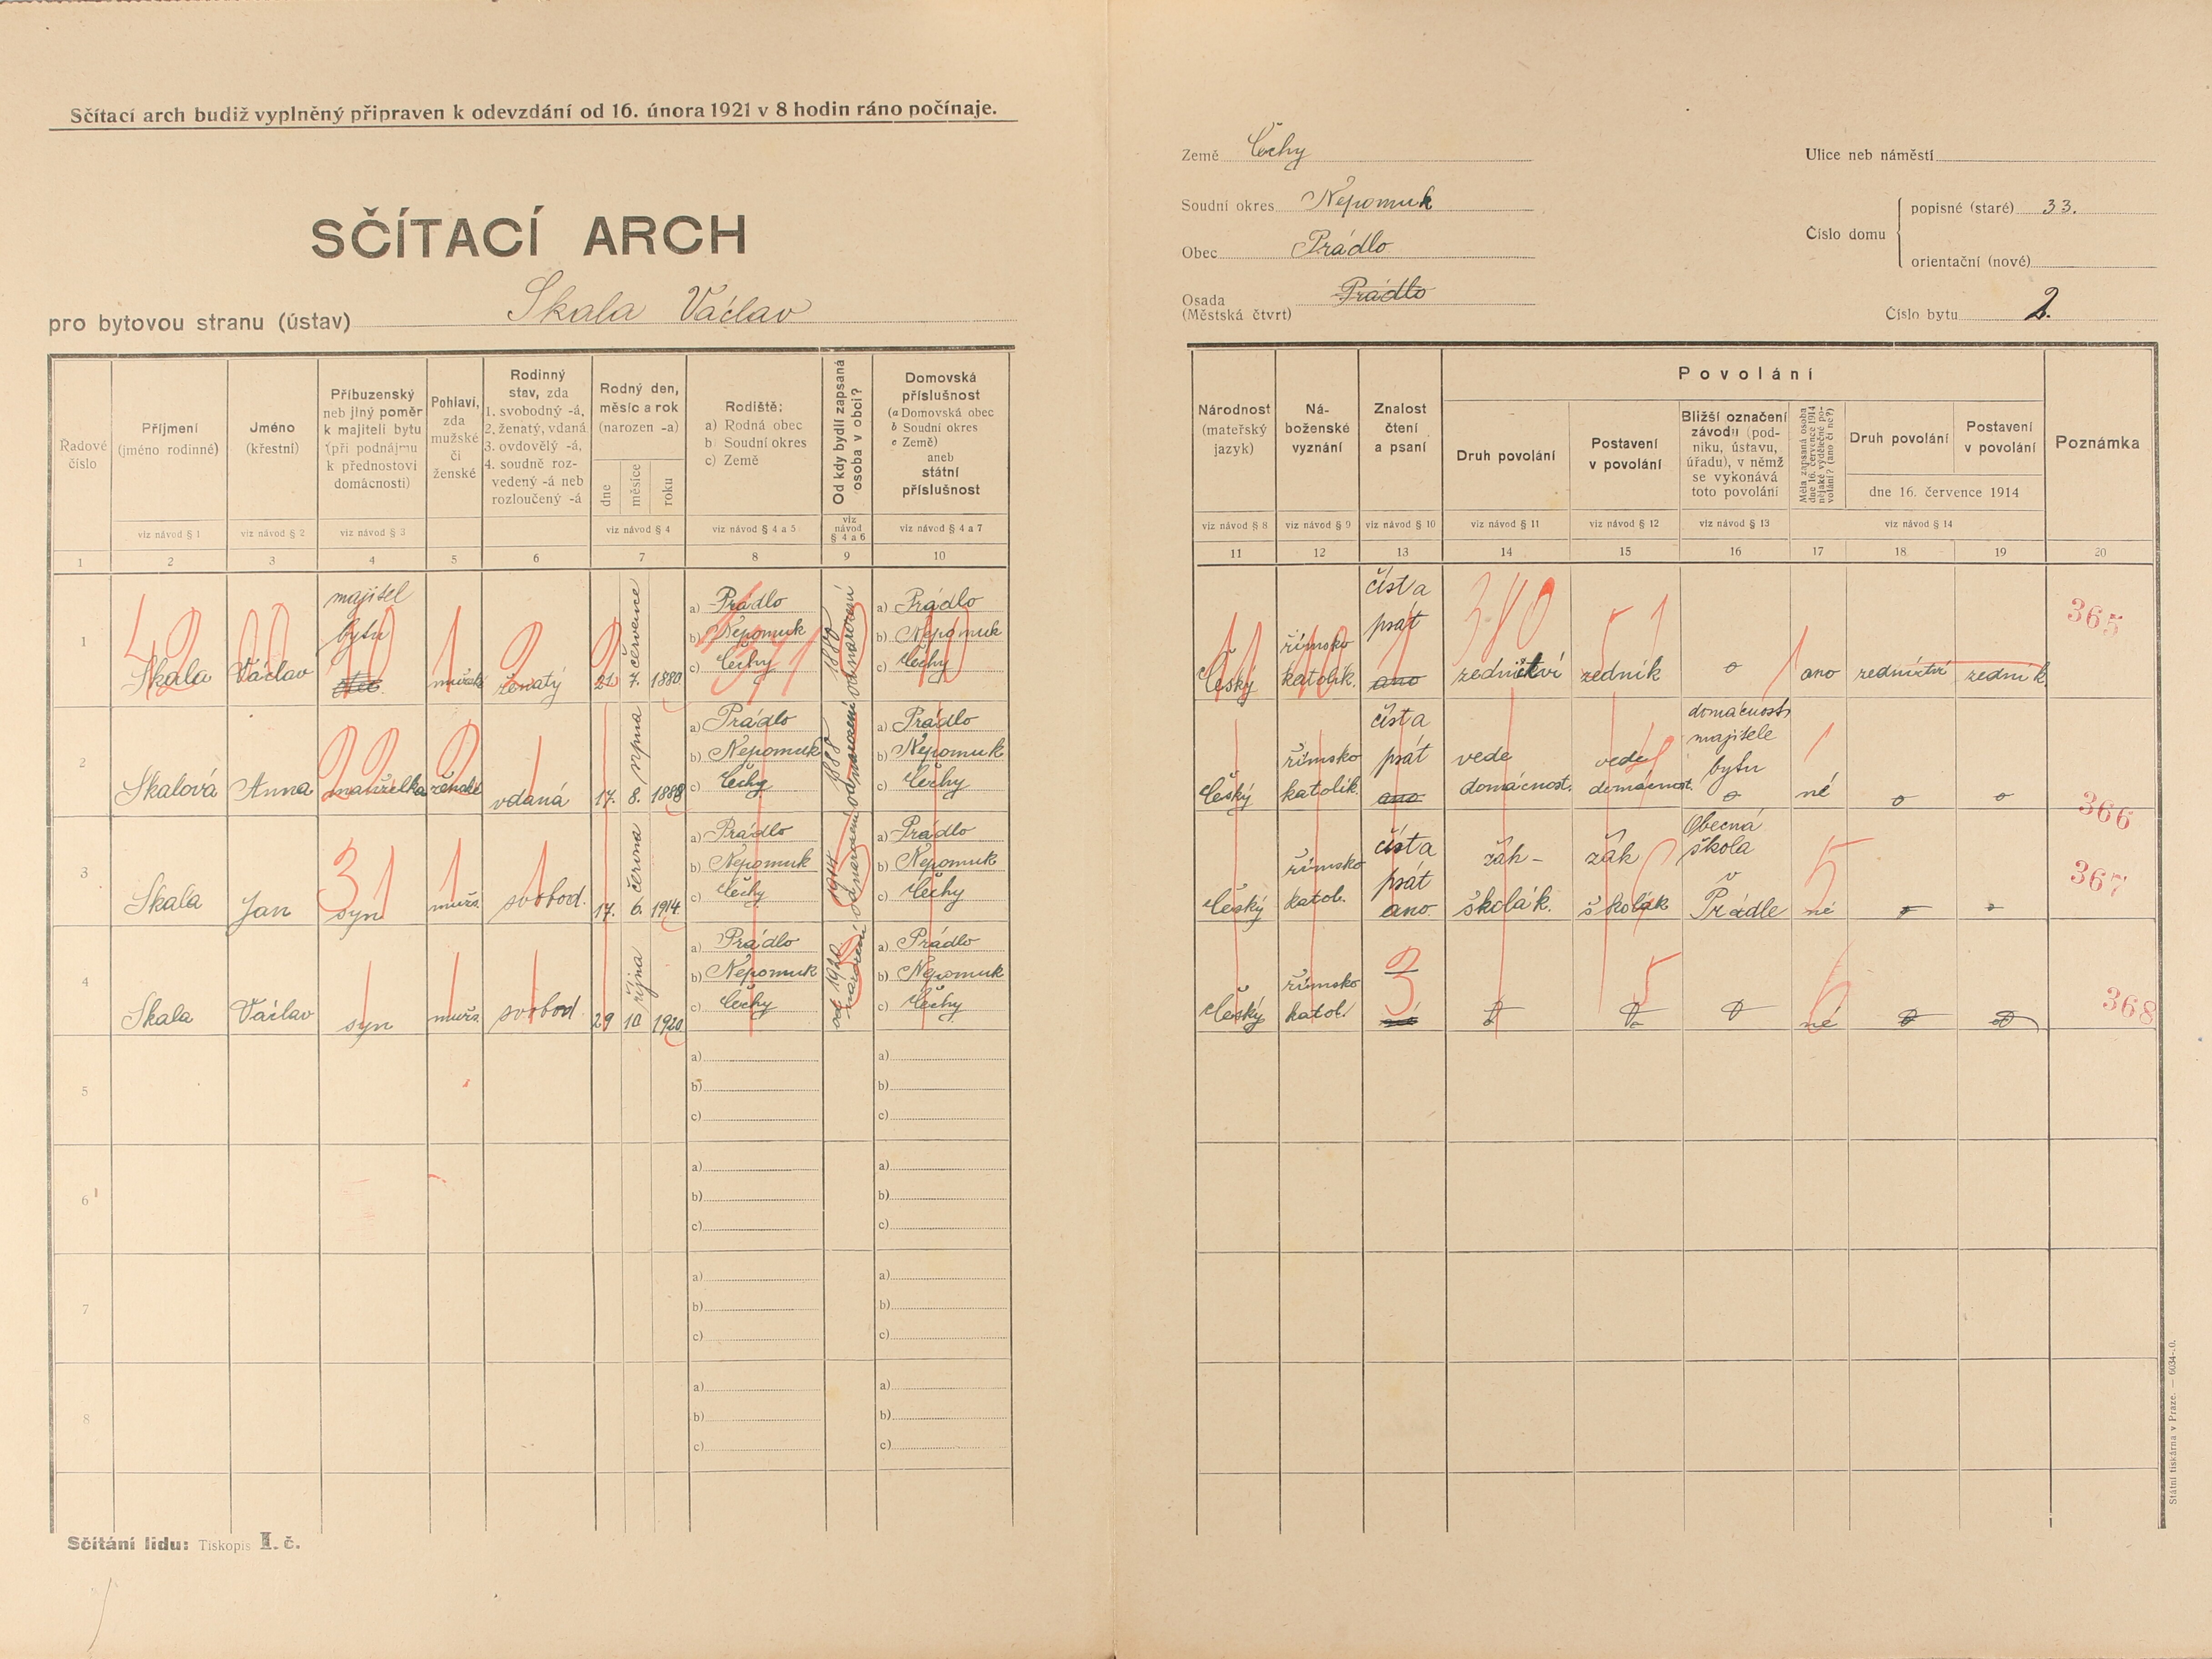 Sčítací arch budiž vyplněný připraven k odevzdání od 16. února 1921 v 8 hodin ráno počínaje.
SČÍTACÍ ARCH
pro bytovou stranu (ústav) Skala Václav
Země Čechy
Soudní okres Nepomuk
Obec Prádlo
Osada Prádlo
(Městská čtvrť)
Ulice neb náměstí
Číslo domu
popisné (staré) 33.
orientační (nové)
Číslo bytu 2.
Řadové číslo
Příjmení (jméno rodinné)
Jméno (křestní)
Příbuzenský neb jiný poměr k majiteli bytu (při podnájmu k přednostovi domácnosti)
Pohlaví, zda mužské či ženské
Rodinný stav, zda 1. svobodný -á, 2. ženatý, vdaná 3. ovdovělý -á, 4. soudně rozvedený -á neb rozloučený -á
Rodný den, měsíc a rok (narozen -a)
dne měsíce roku
Rodiště: a) Rodná obec b) Soudní okres c) Země
Od kdy bydlí zapsaná osoba v obci?
Domovská příslušnost (a Domovská obec b Soudní okres c Země) aneb státní příslušnost
Národnost (mateřský jazyk)
Náboženské vyznání
Znalost čtení a psaní
Povolání
Druh povolání
Postavení v povolání
Bližší označení závodu (podniku, ústavu, úřadu), v němž se vykonává toto povolání
Měla zapsaná osoba dne 16. července 1914 nějaké výdělečné povolání? (ano či ne?)
Druh povolání
Postavení v povolání
dne 16. července 1914
Poznámka
viz návod § 1 viz návod § 2 viz návod § 3 viz návod § 4 viz návod § 4 a 5 viz návod § 4 a 6 viz návod § 4 a 7
viz návod § 8 viz návod § 9 viz návod § 10 viz návod § 11 viz návod § 12 viz návod § 13 viz návod § 14
1 2 3 4 5 6 7 8 9 10
11 12 13 14 15 16 17 18 19 20
1 Skala Václav majitel bytu mužské ženatý 21. 7. července 1880
a) Prádlo b) Nepomuk c) Čechy
1880 od narození
a) Prádlo b) Nepomuk c) Čechy
Český římsko katolík. číst a psát ano zednictví zedník o ano zednictví zedník
365
2 Skalová Anna manželka ženské vdaná 17. 8. srpna 1888
a) Prádlo b) Nepomuk c) Čechy
1888 od narození
a) Prádlo b) Nepomuk c) Čechy
Český římsko katolík. číst a psát ano vede domácnost. vede domácnost. domácnost majitele bytu o né o o
366
3 Skala Jan syn mužs. svobod. 17. 6. června 1914
a) Prádlo b) Nepomuk c) Čechy
1914 od narození
a) Prádlo b) Nepomuk c) Čechy
Český římsko katol. číst a psát ano žák - školák. žák školák Obecná škola v Prádle né
367
4 Skala Václav syn mužs. svobod 29 10 října 1920
a) Prádlo b) Nepomuk c) Čechy
od 1920 narození
a) Prádlo b) Nepomuk c) Čechy
Český římsko katol. né
368
5 a) b) c) a) b) c)
6 a) b) c) a) b) c)
7 a) b) c) a) b) c)
8 a) b) c) a) b) c)
Sčítání lidu: Tiskopis I. č.
Státní tiskárna v Praze. — 6034-.0.